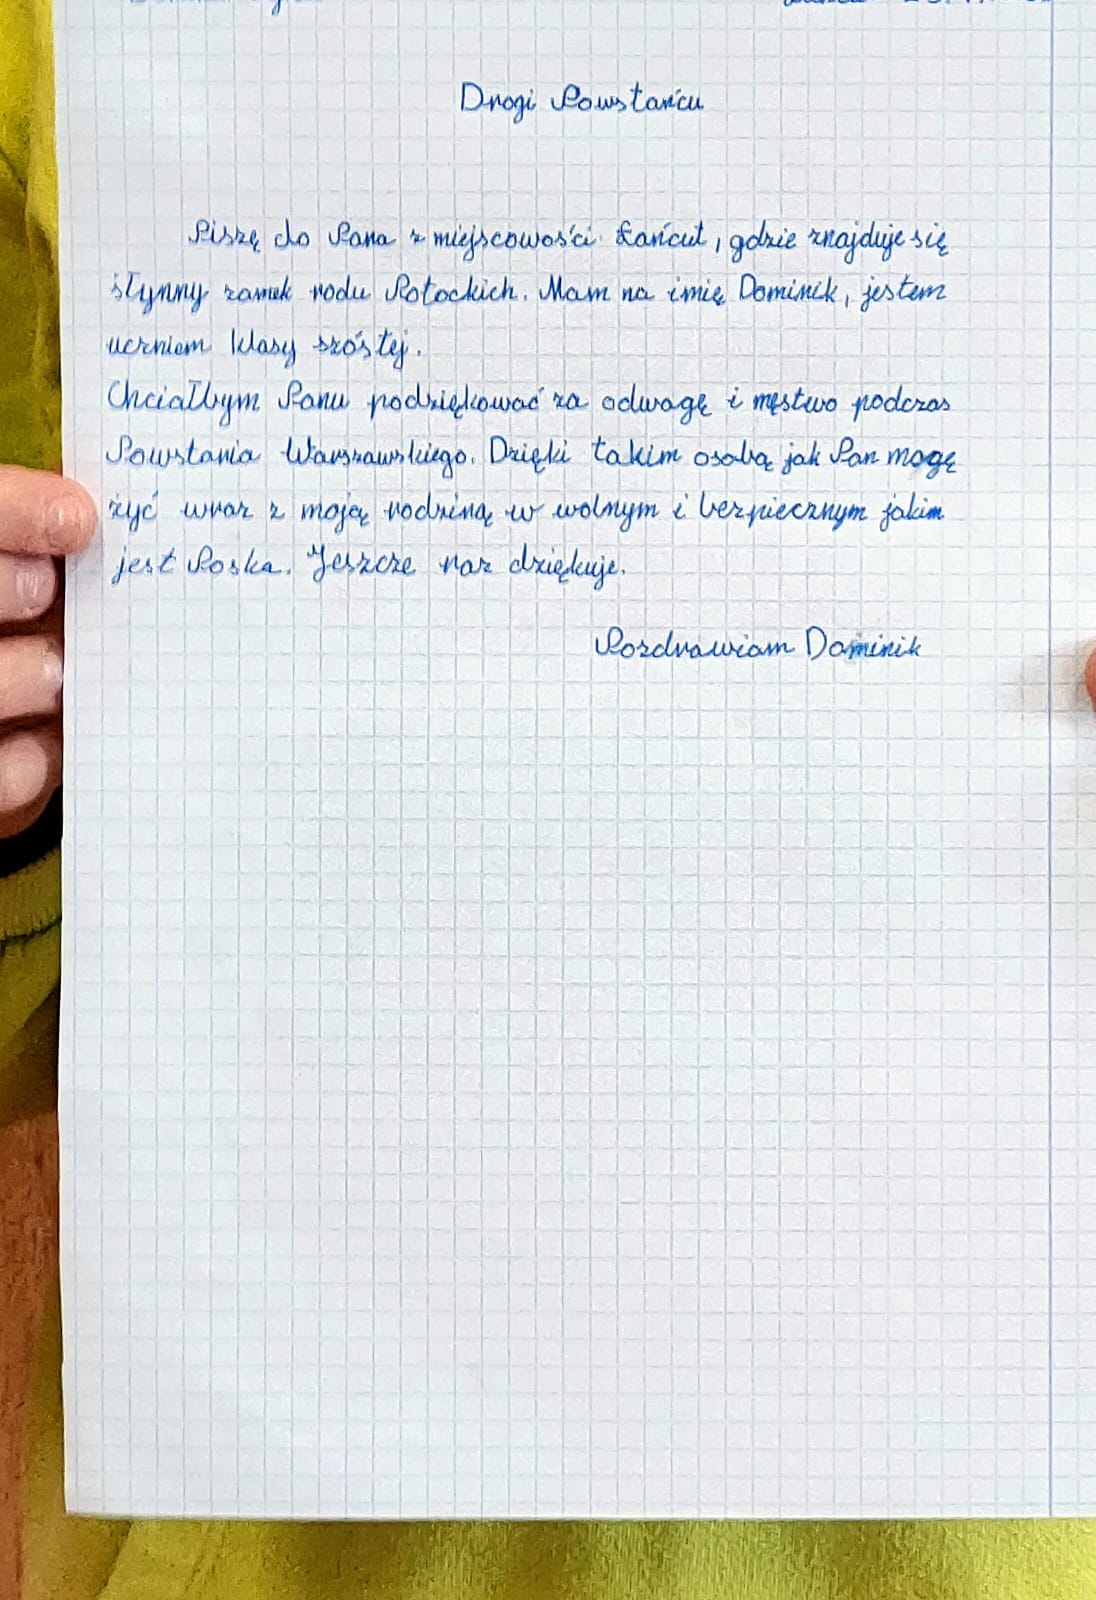 Drogi Powstańcu
Piszę do Pana z miejscowości Łańcut, gdzie znajduje się
słynny zamek rodu Potockich. Mam na imię Dominik, jestem
uczniem klasy szóstej.
Chciałbym Panu podziękować za odwagę i męstwo podczas
Powstania Warszawskiego. Dzięki takim osobą jak Pan mogę
żyć wraz z moją rodziną w wolnym i bezpiecznym jakim
jest Poska. Jeszcze raz dziękuje.
Pozdrawiam Dominik